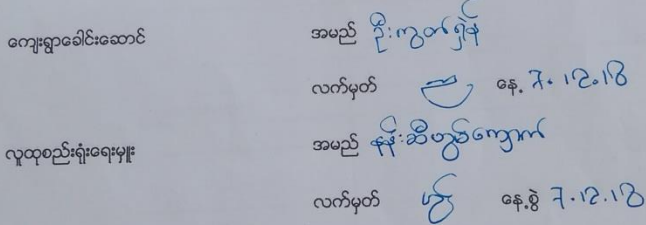 ကျေးရွာခေါင်းဆောင် အမည် ဦးကွတ်ရှိန်
လက်မှတ် နေ့ 7.12.18
လူထုစည်းရုံးရေးမှူး အမည် နန်းဆီဟွမ်ကျောက်
လက်မှတ် နေ့စွဲ 7.12.18